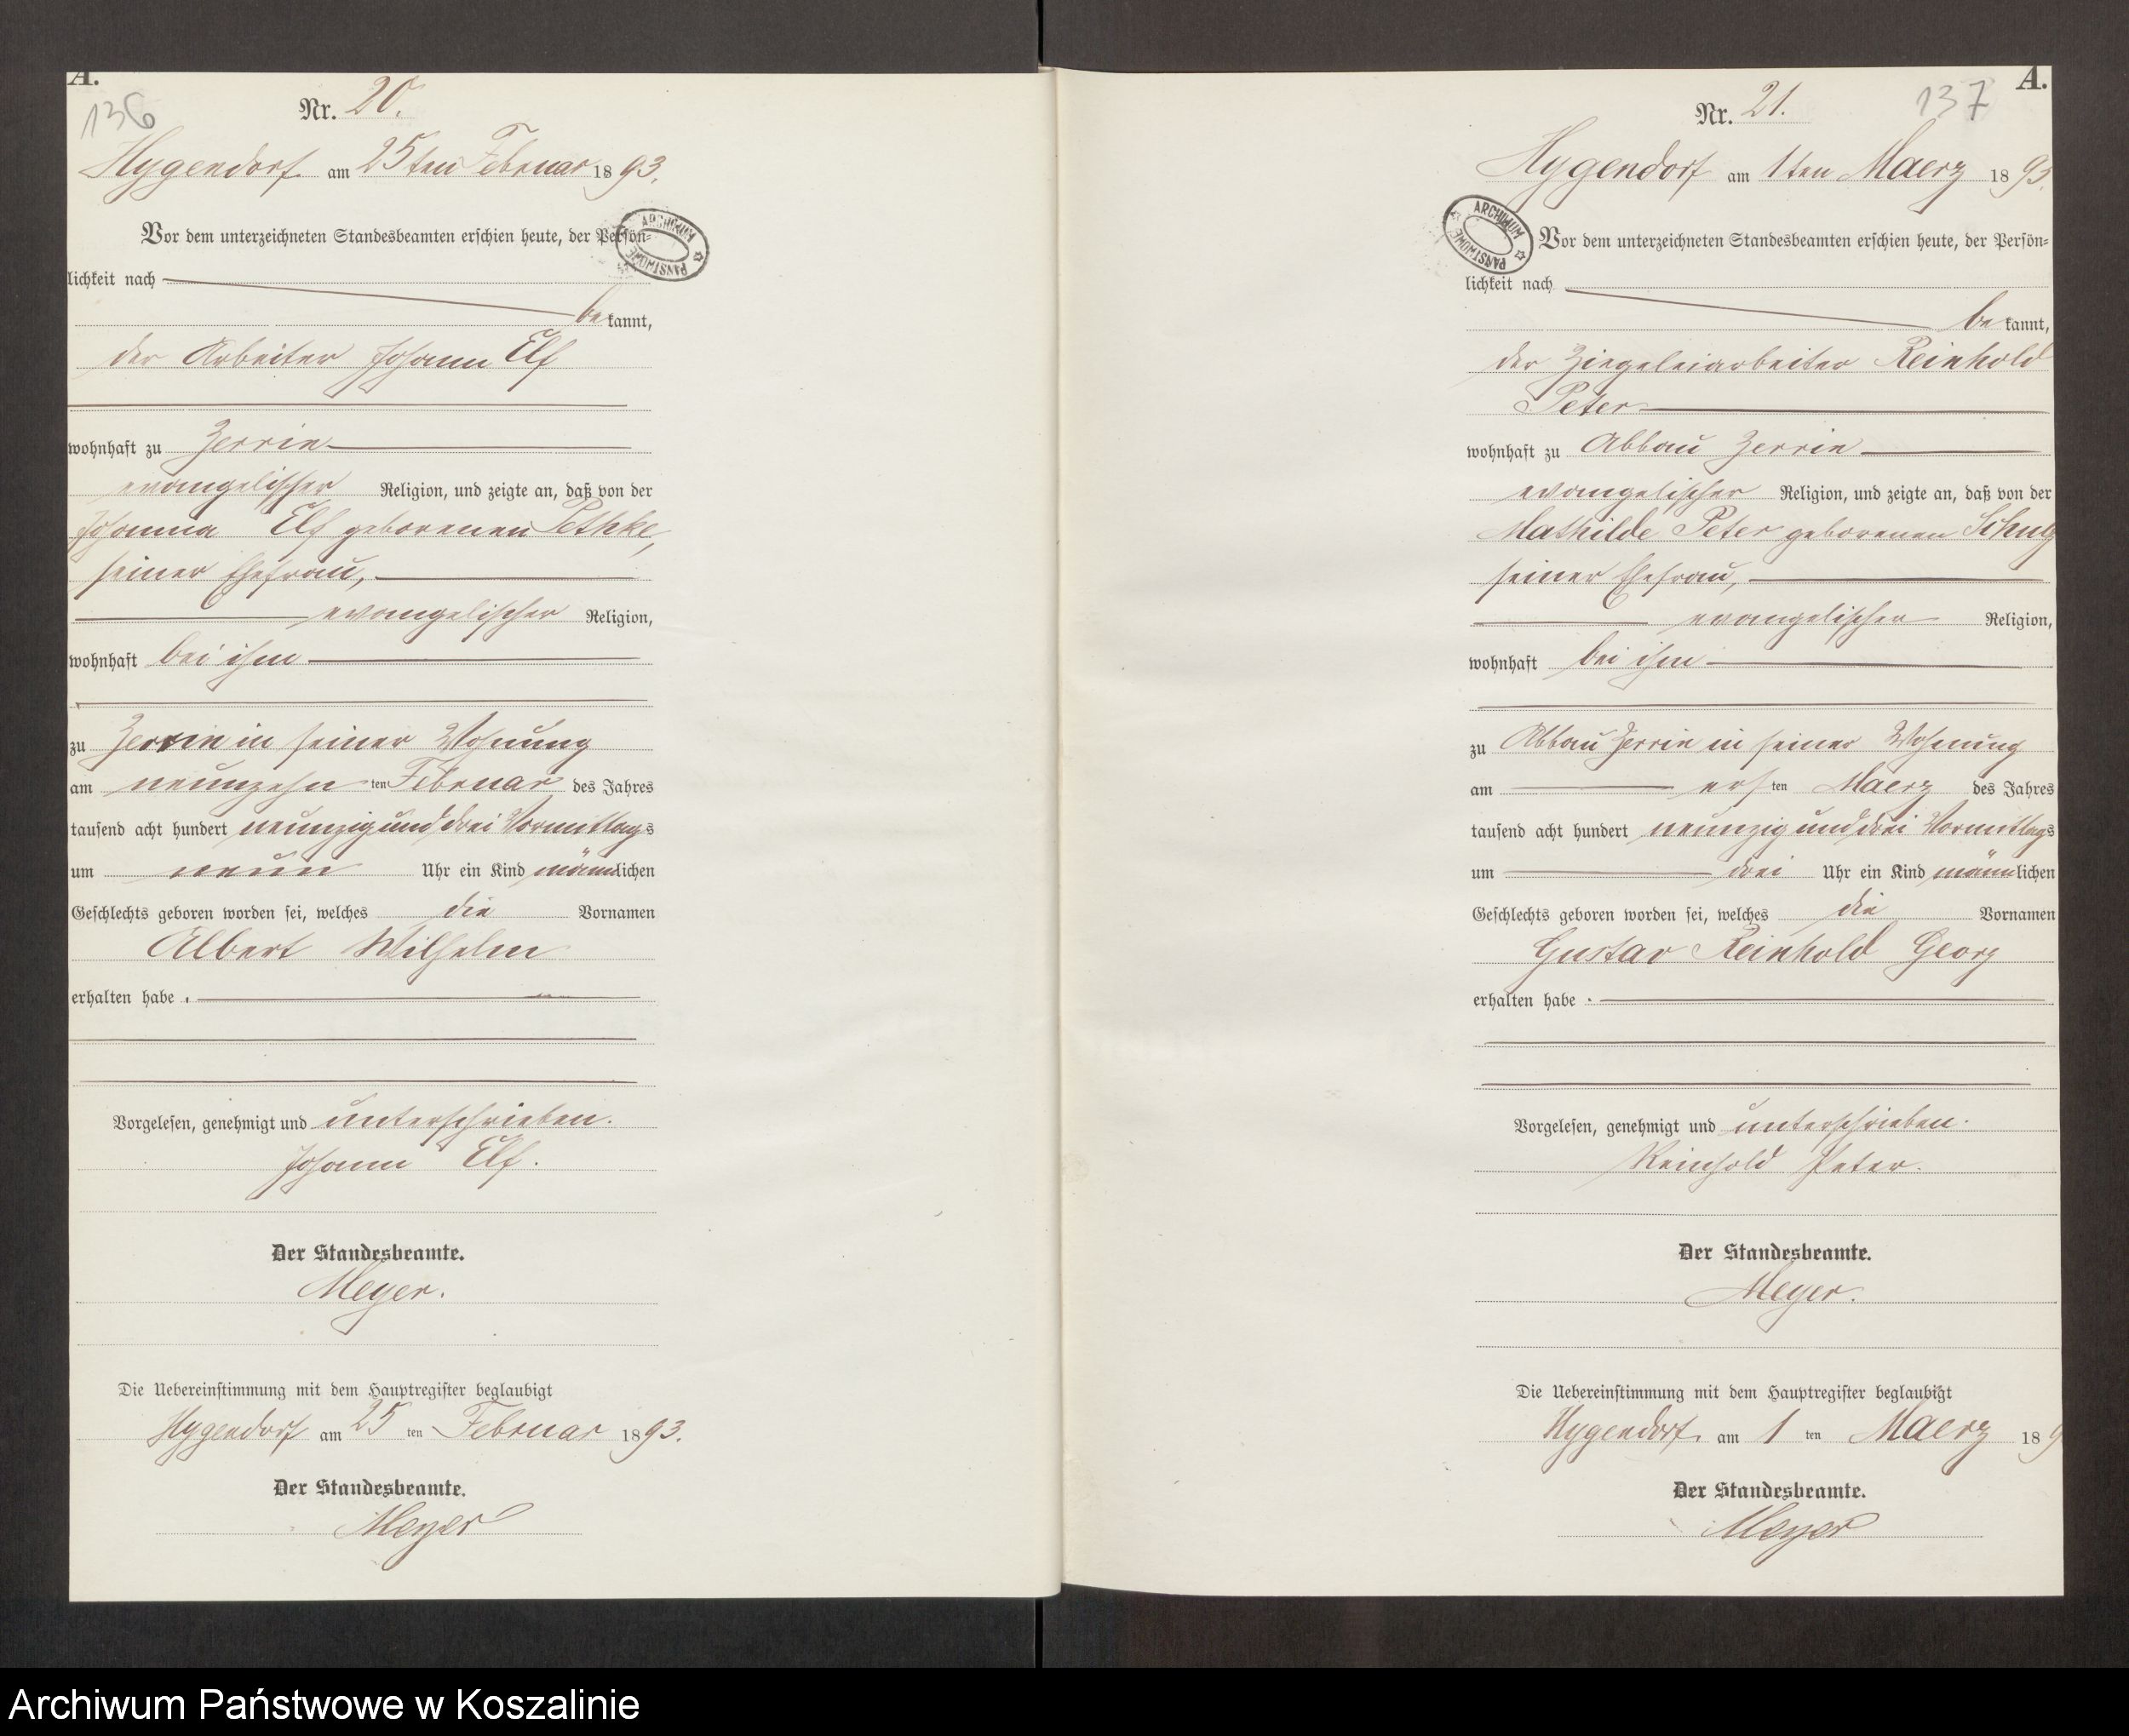 A.
136
Nr. 20.
Hygendorf am 25ten Februar 1893.
Vor dem unterzeichneten Standesbeamten erschien heute, der Persön=
lichkeit nach
bekannt,
der Arbeiter Johann Elf
wohnhaft zu Zerrin
evangelischer Religion, und zeigte an, daß von der
Johanna Elf geborenen Pethke,
seiner Ehefrau,
evangelischer Religion,
wohnhaft bei ihm
zu Zerrin in seiner Wohnung
am neunzehn ten Februar des Jahres
tausend acht hundert neunzig und drei Vormittags
um neun Uhr ein Kind männlichen
Geschlechts geboren worden sei, welches die Vornamen
Albert Wilhelm
erhalten habe.
Vorgelesen, genehmigt und unterschrieben.
Johann Elf.
Der Standesbeamte.
Meyer.
Die Uebereinstimmung mit dem Hauptregister beglaubigt
Hygendorf am 25 ten Februar 1893.
Der Standesbeamte.
Meyer
A.
137
Nr. 21.
Hygendorf am 1ten Maerz 1893.
ARCHIWUM PAŃSTWOWE
Vor dem unterzeichneten Standesbeamten erschien heute, der Persön=
lichkeit nach
bekannt,
der Ziegeleiarbeiter Reinhold
Peter
wohnhaft zu Abbau Zerrin
evangelischer Religion, und zeigte an, daß von der
Mathilde Peter geborenen Schulz
seiner Ehefrau,
evangelischer Religion,
wohnhaft bei ihm
zu Abbau Zerrin in seiner Wohnung
am ersten Maerz des Jahres
tausend acht hundert neunzig und drei Vormittags
um drei Uhr ein Kind männlichen
Geschlechts geboren worden sei, welches die Vornamen
Gustav Reinhold Georg
erhalten habe.
Vorgelesen, genehmigt und unterschrieben.
Reinhold Peter.
Der Standesbeamte.
Meyer.
Die Uebereinstimmung mit dem Hauptregister beglaubigt
Hygendorf am 1 ten Maerz 189
Der Standesbeamte.
Meyer
Archiwum Państwowe w Koszalinie